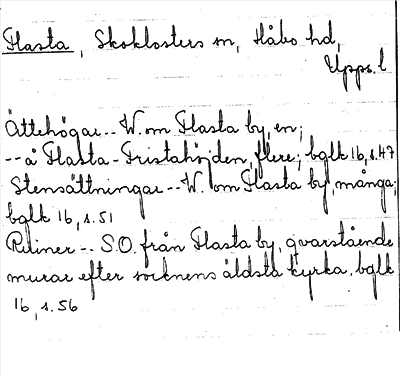 Flasta, Skoklosters sn, Håbo hd,
Upps. l
Ättehögar -- W. om Flasta by, en;
-- å Flasta-Fristahöjden, flere; bglk 16, s. 47
Stensättningar -- W. om Flasta by, många;
bglk 16, s. 51
Ruiner -- S.O. från Flasta by, qvarstående
murar efter socknens äldsta kyrka. bglk
16, s. 56